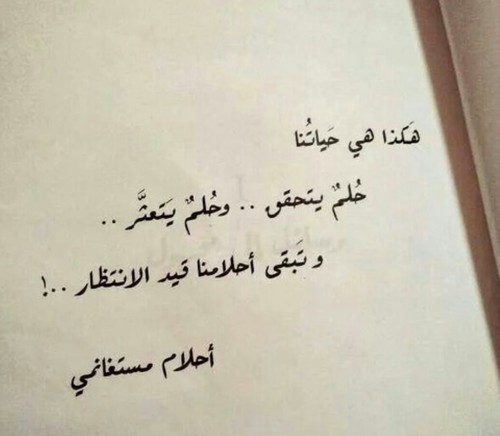 هَكذا هي حَياتُنا
حُلمٌ يتحقق .. وحُلمٌ يَتعثَّر ..
و تَبقى أحلامنا قيد الانتظار ..!
أحلام مستغانمي